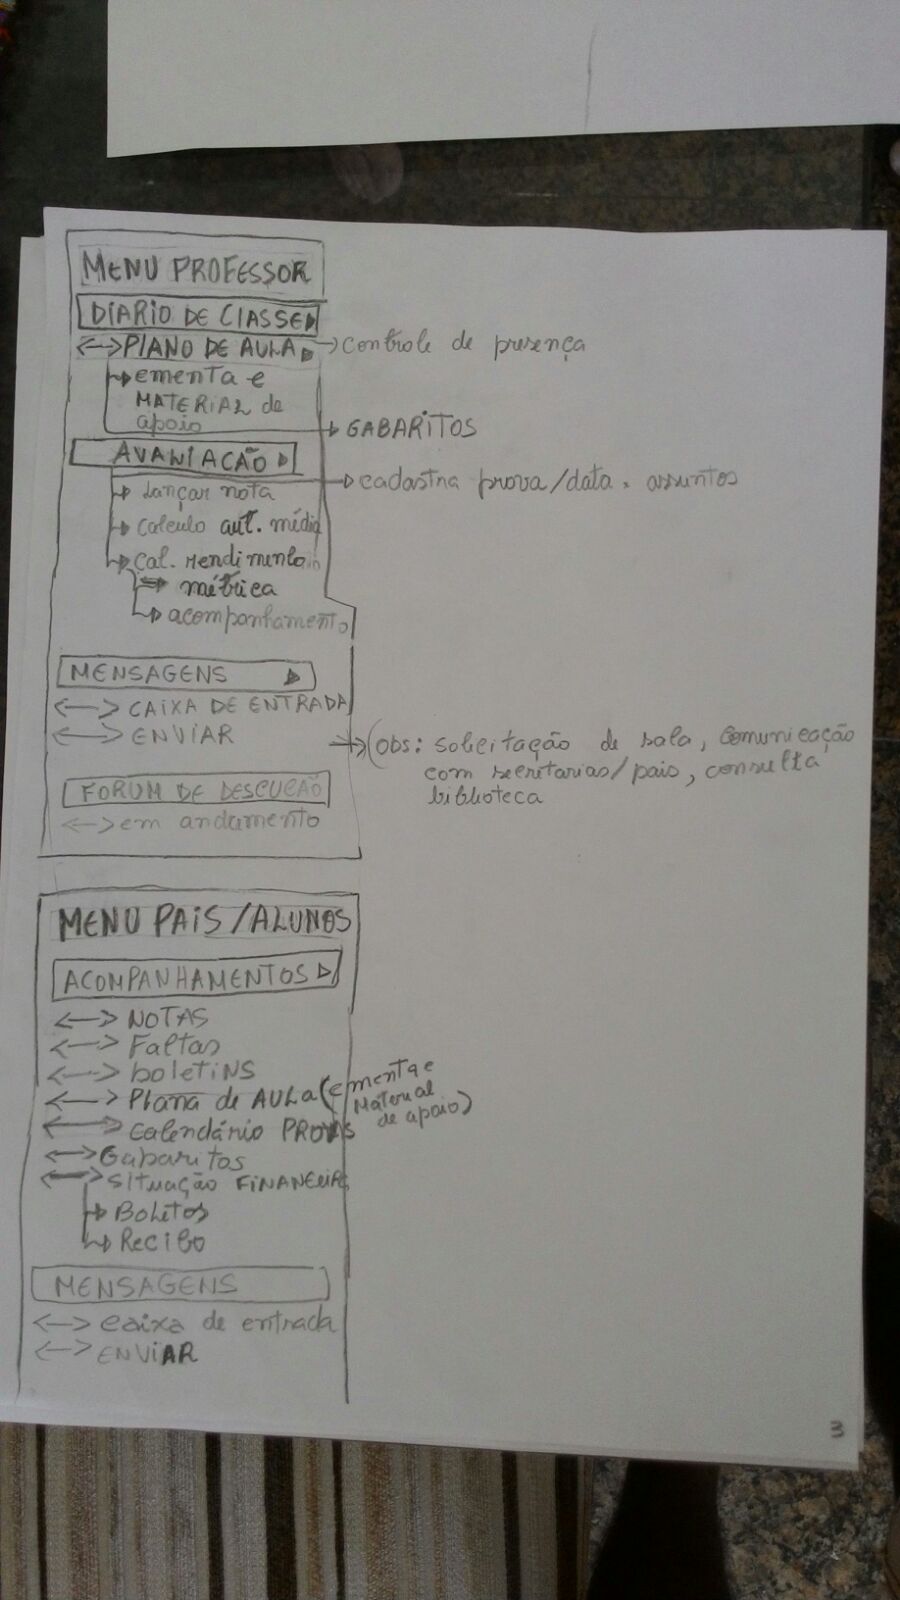 MENU PROFESSOR
DIARIO DE CLASSE
PLANO DE AULA
controle de presença
ementa e
MATERIAL de
apoio
GABARITOS
AVANIACAÕ
cadastra prova/data. assuntos
Lançar nota
calculo aut. média
Cal. rendimento
métrica
acompanhamento
MENSAGENS
CAIXA DE ENTRADA
ENVIAR
(obs: solicitação de sala, comunicação
com secretarias/pais, consulta
biblioteca
FORUM DE DESCUCÃO
em andamento
MENU PAIS/ALUNOS
ACOMPANHAMENTOS
NOTAS
Faltas
boletiNS
Plana de AULA (ementa e
Material
de apoio)
Calendário PROVAS
Gabaritos
SITUAÇÃO FINANCEIRA
Boletos
Recibo
MENSAGENS
caixa de entrada
ENViAR
3